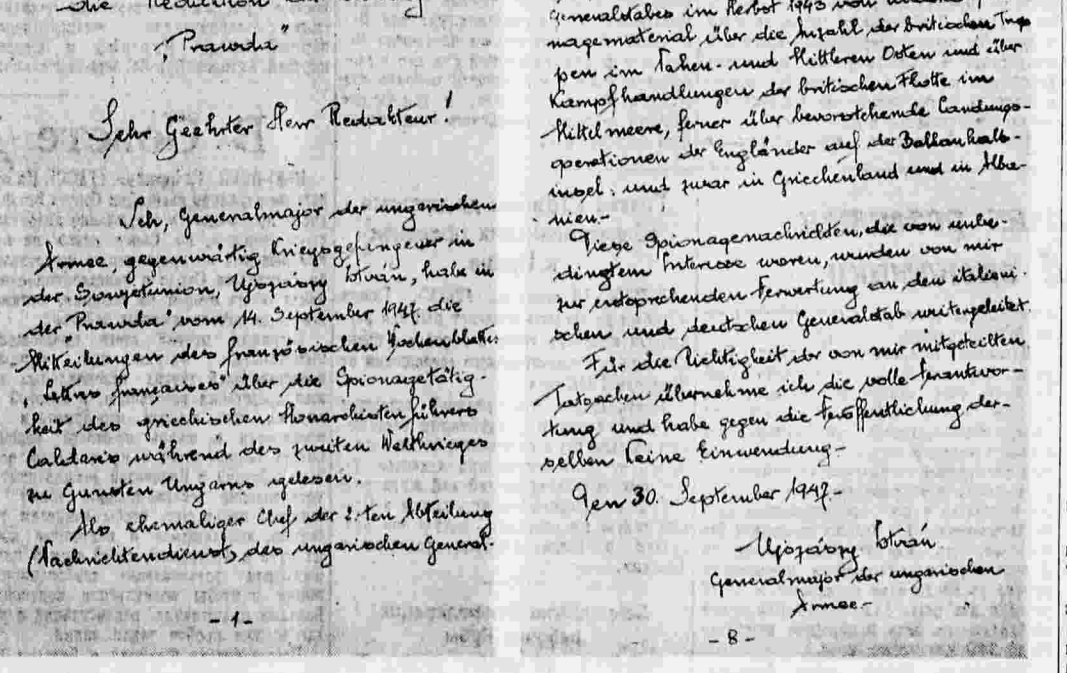 die Redaktion
"Prawda"
Sehr Geehrter Herr Redakteur!
Ich, Generalmajor der ungarischen
Armee, gegenwärtig Kriegsgefangener in
der Sowjetunion, Ujszászy István, habe in
der "Prawda" vom 14. September 1947 die
Mitteilungen des französischen Wochenblattes
"Lettres françaises" über die Spionagetätig-
keit des griechischen Monarchistenführers
Caldaris während des zweiten Weltkrieges
zu Gunsten Ungarns gelesen.
Als ehemaliger Chef der 2.ten Abteilung
(Nachrichtendienst) des ungarischen General-
- 1 -
Generalstabes im Herbst 1943 von
nagematerial über die Anzahl der britischen Trup-
pen im Nahen- und Mittleren Osten und über
Kampfhandlungen der britischen Flotte im
Mittelmeere, ferner über bevorstehende Landungs-
operationen der Engländer auf der Balkanhalb-
insel, und zwar in Griechenland und in Alba-
nien.-
Diese Spionagenachrichten, die von unbe-
dingtem Interesse waren, wurden von mir
zur entsprechenden Verwertung an den italieni-
schen und deutschen Generalstab weitergeleitet.
Für die Richtigkeit der von mir mitgeteilten
Tatsachen übernehme ich die volle Verantwor-
tung und habe gegen die Veröffentlichung der-
selben keine Einwendung.-
Den 30. September 1947.-
Ujszászy István
Generalmajor der ungarischen
Armee.-
- 8 -